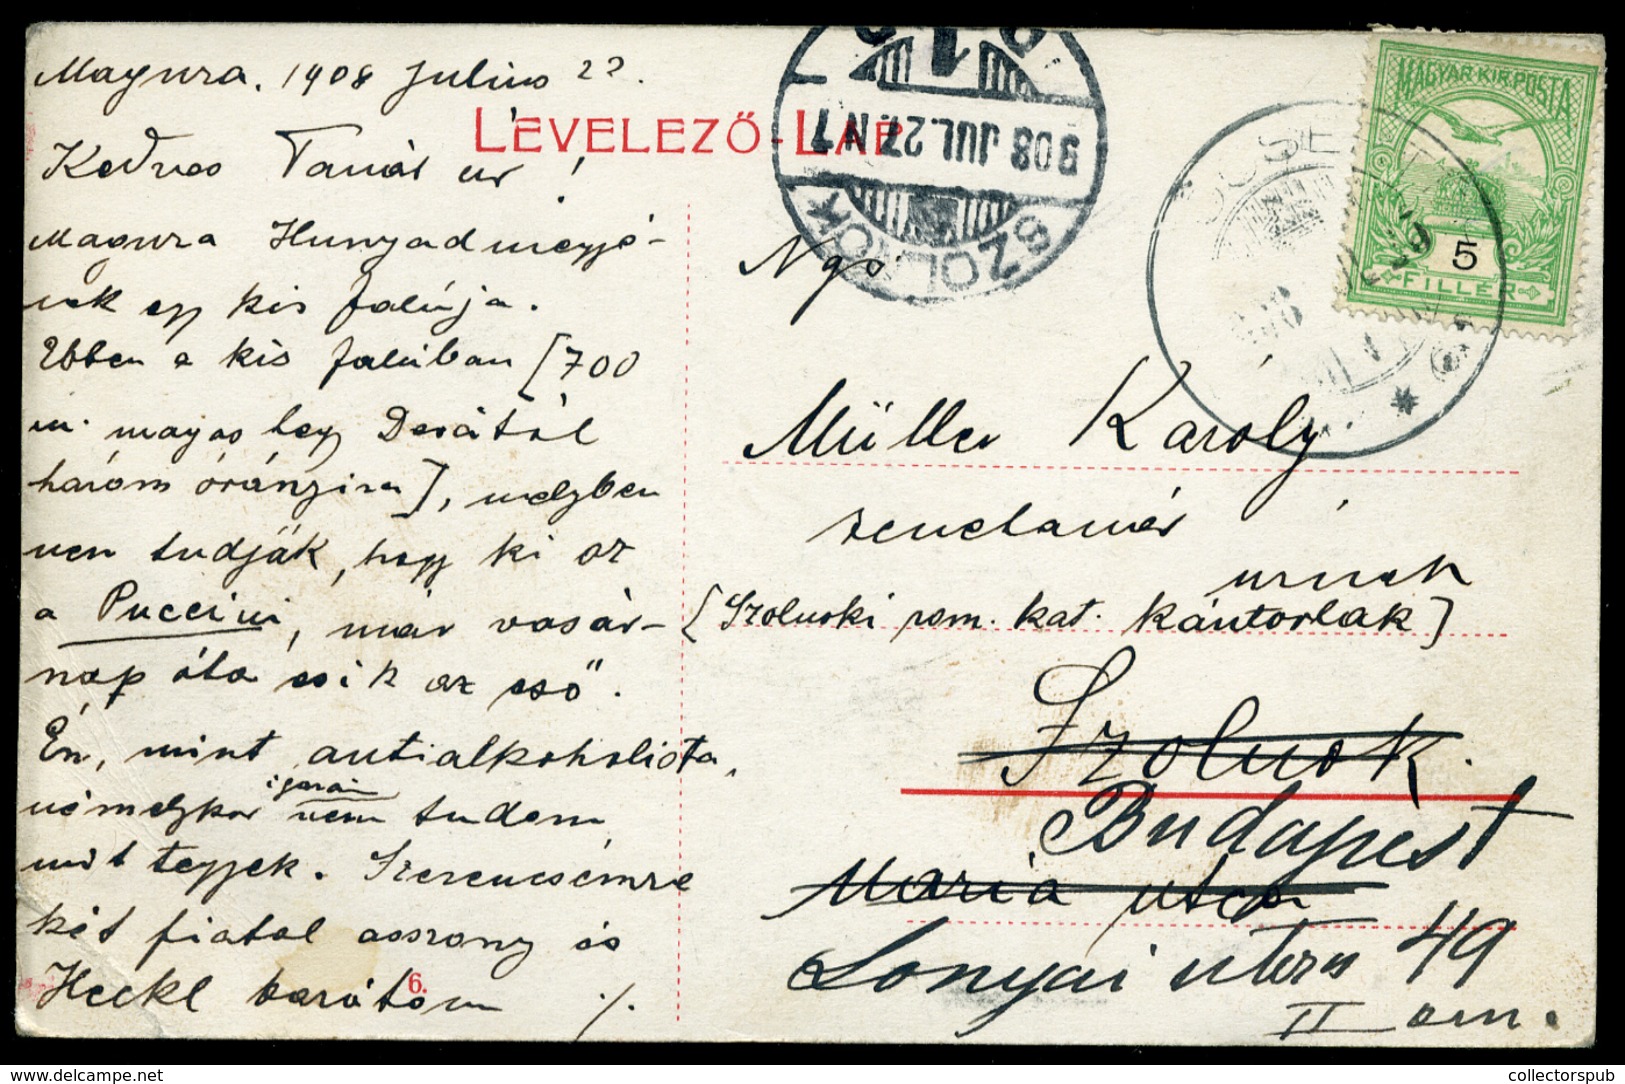 Magura. 1908 Julius 22.
LEVELEZŐ-LAP
Kedves Tanár úr!
Magura Hunyadmegyé-
nek egy kis falúja.
Ebben a kis falúban [700
m. magas hegy Dévától
három óránzira], melyben
nem tudják, hogy ki az
a Puccini, már vasár-
nap óta esik az eső.
Én, mint antialkoholista,
némelykor igazán nem tudom
mit tegyek. Szerencsémre
két fiatal asszony és
Heckl barátom ./.
6.
908 JUL. 27. N 7
SZOLNOK
MAGYAR KIR. POSTA
5
FILLÉR
Ngs.
Müller Károly
zenetanár
urnak
[Szolnoki rom. kat. kántorlak]
Szolnok.
Budapest
Mária utca
Lonyai utca 49
II em.
collectorspub